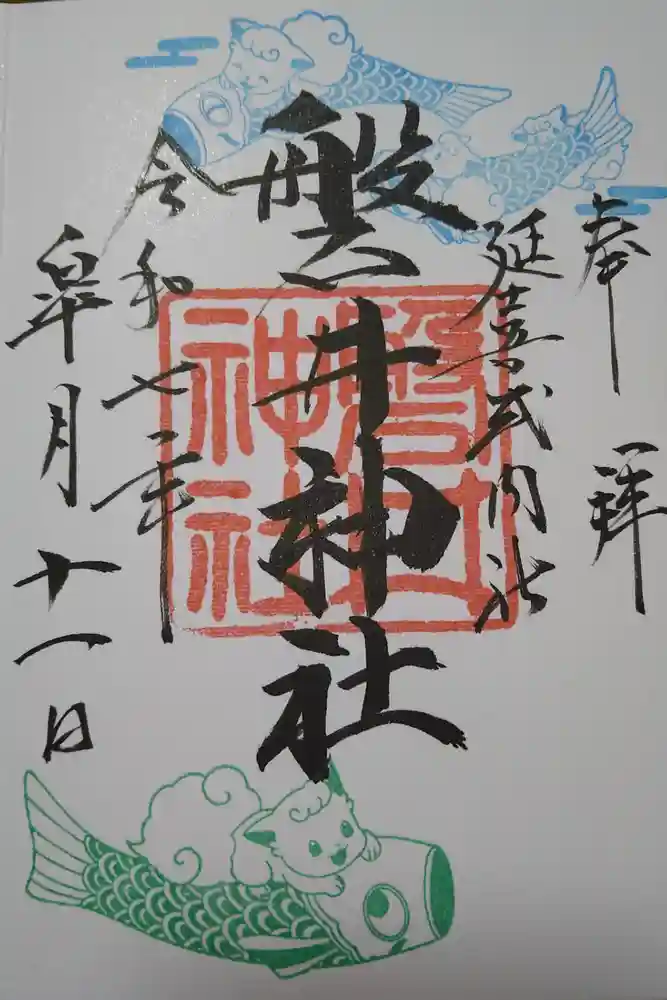 奉拝
延喜式内社
磐井神社
磐井神社
令和七年
皐月十一日